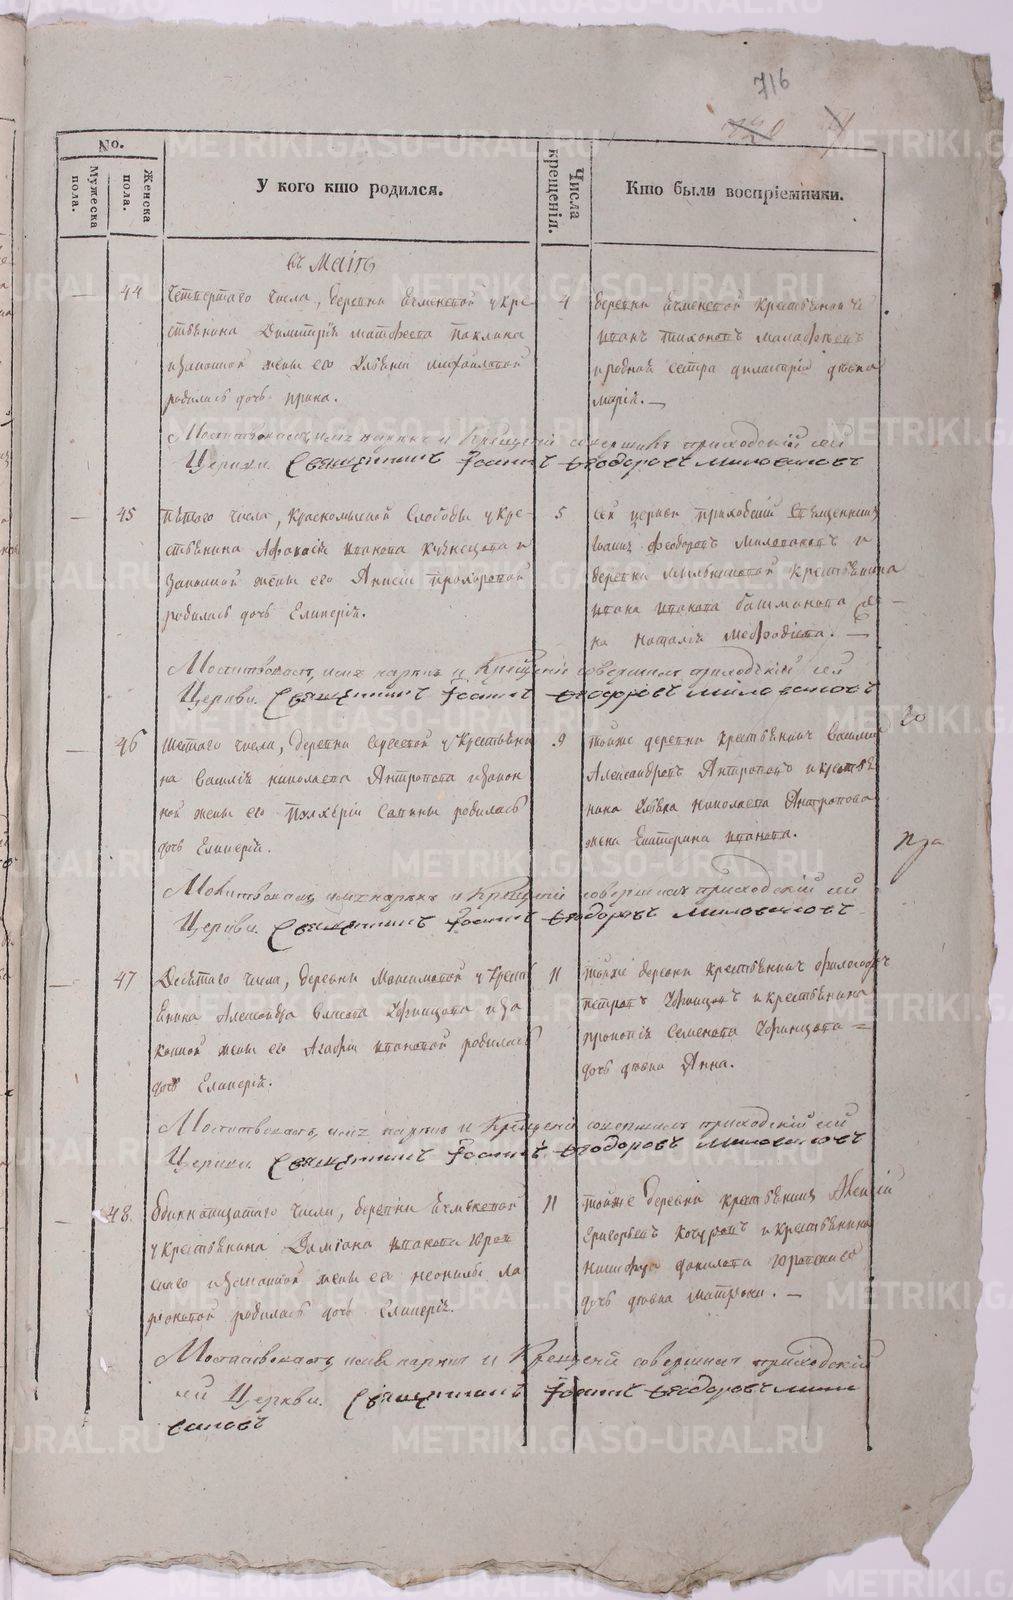 716
No.
Мужеска пола.
Женска пола.
У кого кто родился.
Числа крещенія.
Кто были воспріемники.
въ Маіѣ
44
Четвертаго числа, деревни Ячменевой у кре-
стьянина Димитрія Матфеева Паклина
и законной жены его Михайловой
родилась дочь Ирина.
4
деревни Ячменевой крестьянинъ
Иванъ Тихоновъ
и родная сестра Димитрія девка
Марія.
Молитвовалъ, имя нарекъ и Крещеніе совершилъ приходскій сей
Церкви Священникъ Іоаннъ Ѳеодоровъ Миловановъ
45
Пятаго числа, Красномыской Слободы у кре-
стьянина Афанасія Иванова Кузнецова и
законной жены его Анисіи Прохоровой
родилась дочь Гликерія.
5
сей церкви приходскій Священникъ
Іоаннъ Феодоровъ Миловановъ и
деревни крестьянина
Ивана Иванова Башманова
на Наталія Мефодіева.
Молитвовалъ, имя нарекъ и Крещеніе совершилъ приходскій сей
Церкви Священникъ Іоаннъ Ѳеодоровъ Миловановъ
46
числа, деревни у крестьяни
на Василія Николаева Антропова и закон
ной жены его Пулхеріи Савины родилась
дочь Гликерія.
9
тойже деревни крестьянинъ Василій
Александровъ Антроповъ и крестья
нина Николаева Антропова
жена Екатерина Иванова.
Молитвовалъ, имя нарекъ и Крещеніе совершилъ приходскій сей
Церкви Священникъ Іоаннъ Ѳеодоровъ Миловановъ
47
Десятаго числа, деревни Максимовой у крест
янина Александра Уфинцова и за
конной жены его Агафіи Ивановой родилась
дочь Гликерія.
11
тойже деревни крестьянинъ
Петровъ Уфинцовъ и крестьянина
Прокопія Семенова Уфинцова
дочь девка Анна.
Молитвовалъ, имя нарекъ и Крещеніе совершилъ приходскій сей
Церкви Священникъ Іоаннъ Ѳеодоровъ Миловановъ
48.
Одиннатцатаго числа, деревни Ячменевой
у крестьянина Даміана Иванова
и законной жены его Неонилы Ла
ріоновой родилась дочь Гликерія.
11
тойже деревни крестьянинъ Алексій
Григорьевъ и крестьянина
Никифора Данилова
дочь девка Матрона.
Молитвовалъ, имя нарекъ и Крещеній совершилъ приходскій
сей Церкви Священникъ Іоаннъ Ѳеодоровъ Мило
вановъ
METRIKI.GASO-URAL.RU